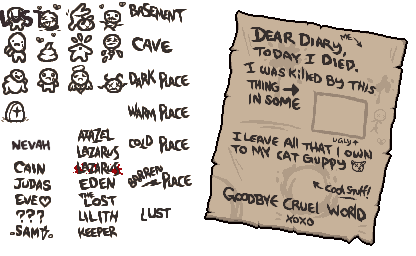 BASEMENT
CAVE
DARK PLACE
WARM PLACE
COLD PLACE
BARREN PLACE
LUST
NEVAH
CAIN
JUDAS
EVE
???
SAM
AZAZEL
LAZARUS
LAZARUS
EDEN
THE LOST
LILITH
KEEPER
DEAR DIARY,
ME
TODAY I DIED.
I WAS KILLED BY THIS
THING
IN SOME
UGLY
I LEAVE ALL THAT I OWN
TO MY CAT GUPPY
COOL STUFF!
GOODBYE CRUEL WORLD
XOXO